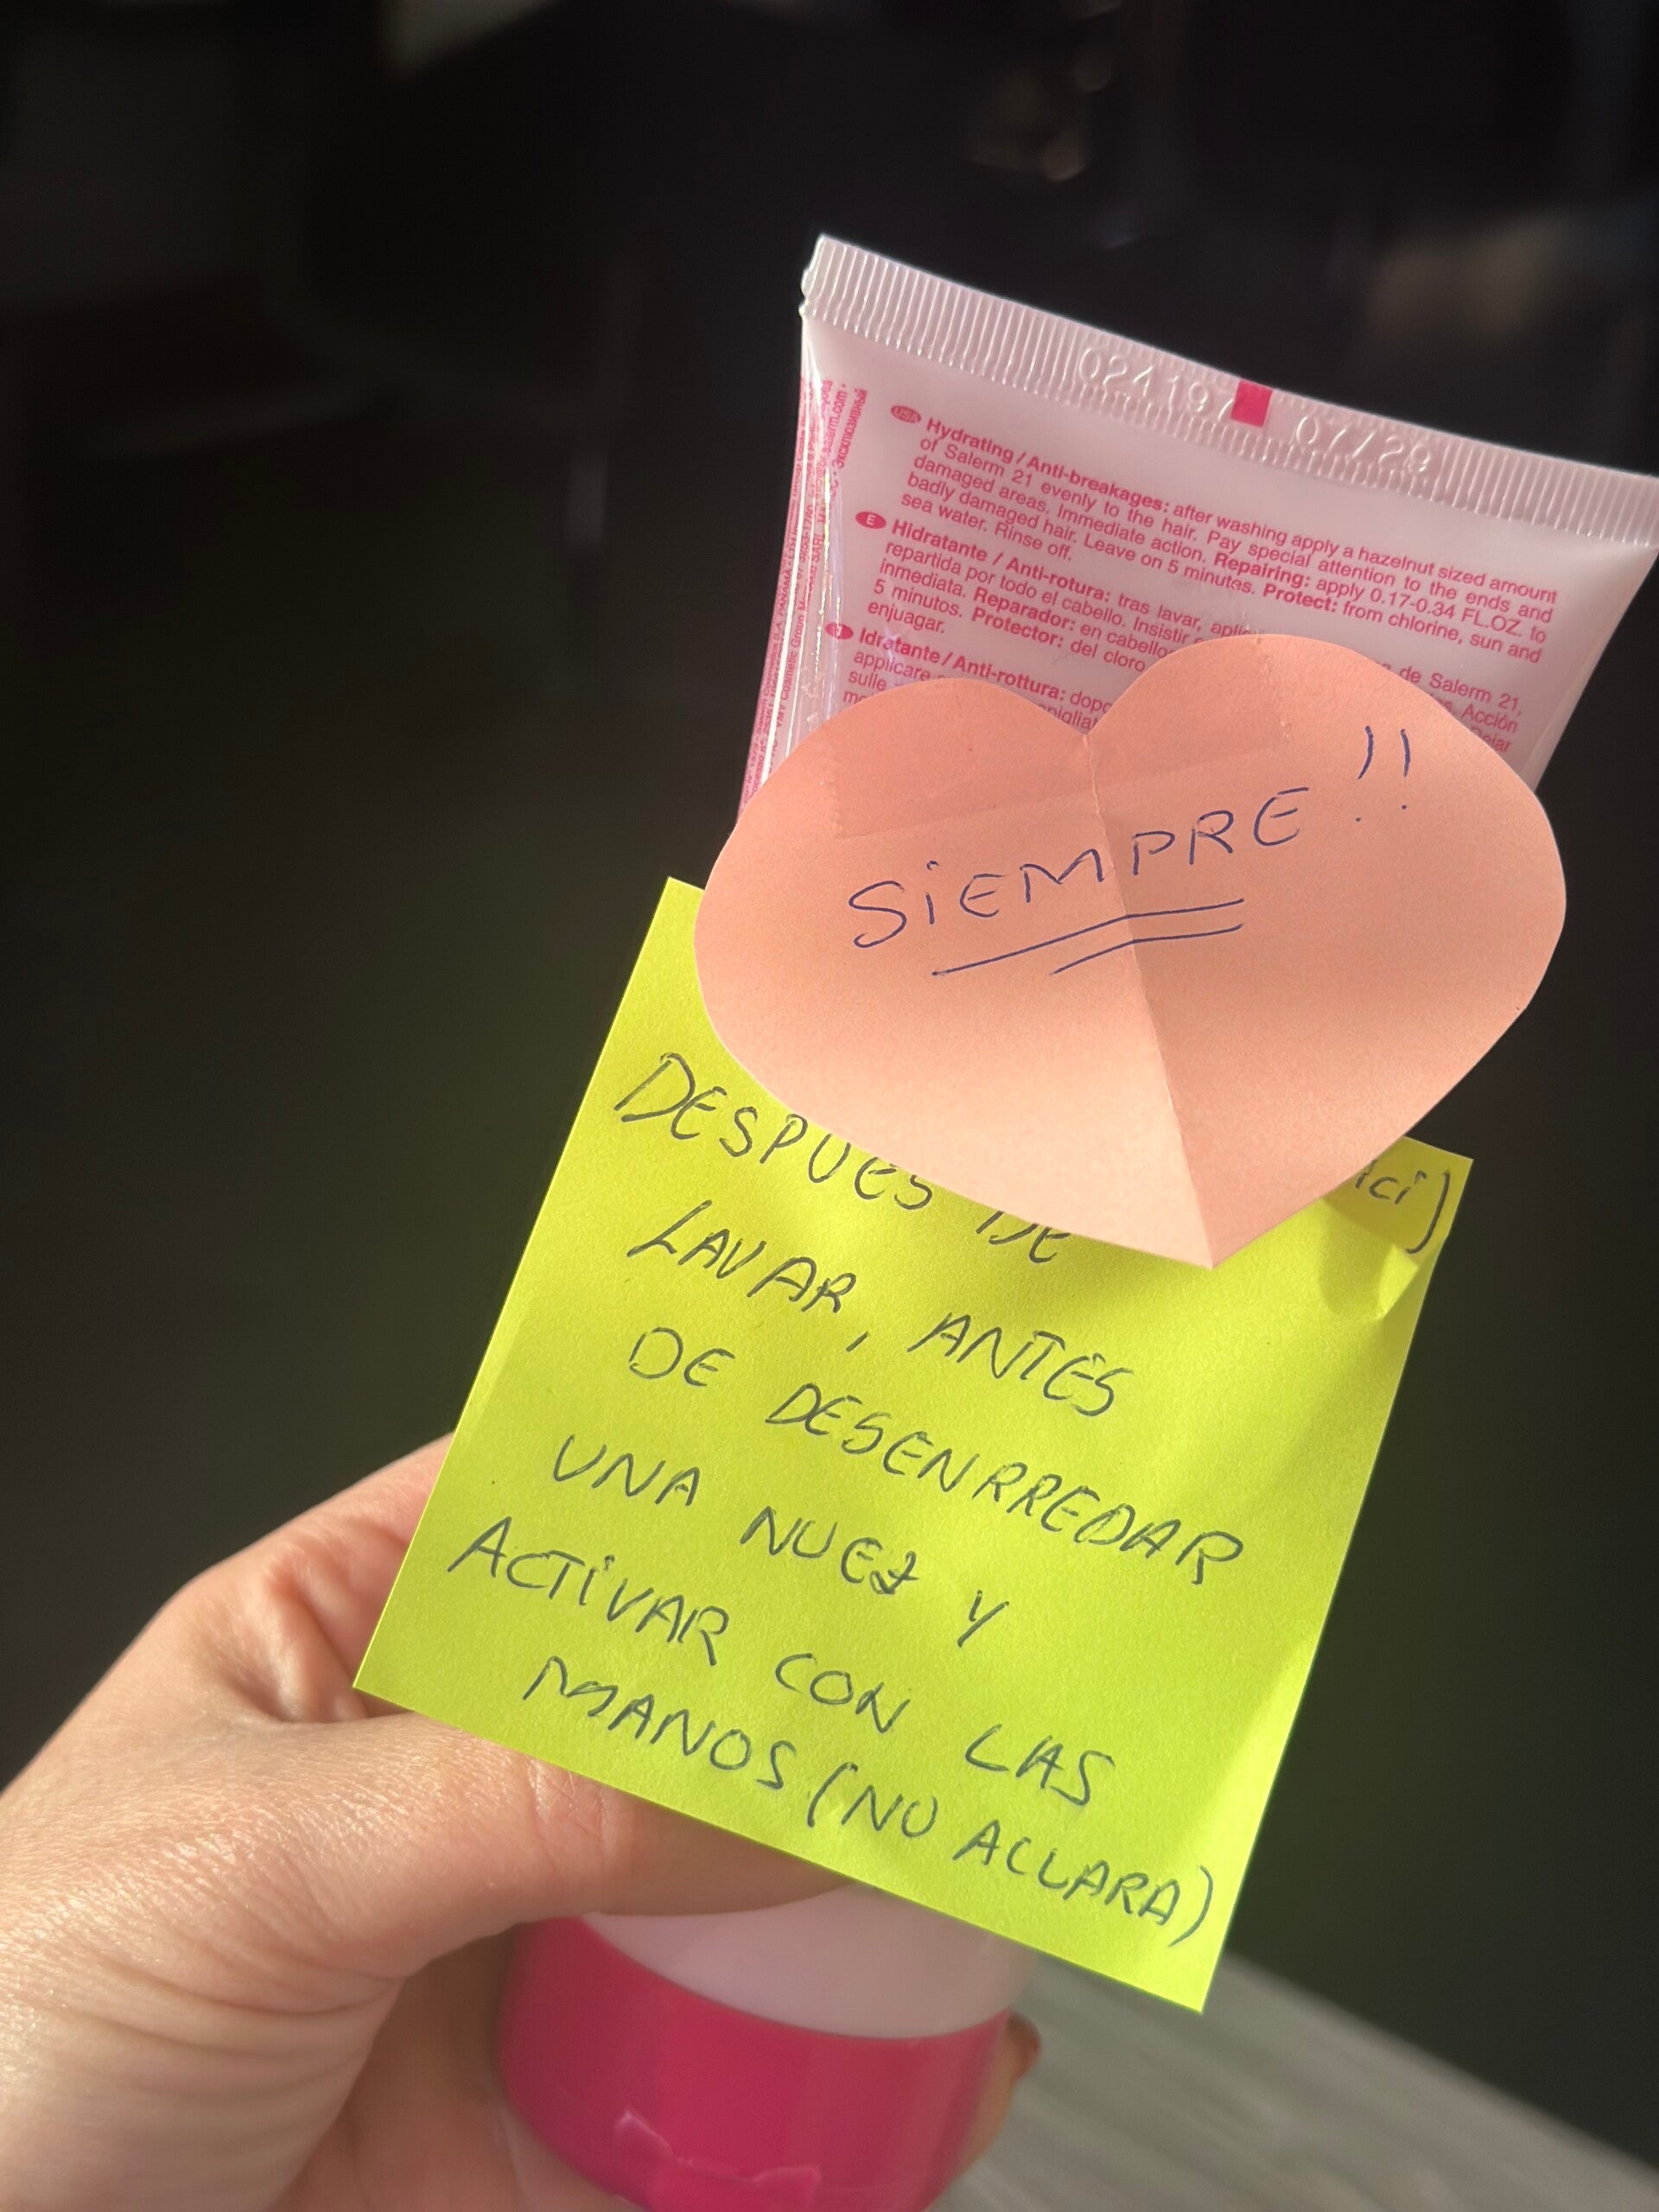 024197 07/29
USA Hydrating / Anti-breakages: after washing apply a hazelnut sized amount
of Salerm 21 evenly to the hair. Pay special attention to the ends and
damaged areas. Immediate action. Repairing: apply 0.17-0.34 FL.OZ. to
badly damaged hair. Leave on 5 minutes. Protect: from chlorine, sun and
sea water. Rinse off.
E Hidratante / Anti-rotura: tras lavar,
repartida por todo el cabello. Insistir de Salerm 21,
inmediata. Reparador: en cabello Acción
5 minutos. Protector: del cloro
enjuagar.
Idratante / Anti-rottura:
applicare
sulle
SiEMPRE!!
DESPUES DE
LAVAR, ANTES
DE DESENRREDAR
UNA NUEZ Y
ACTIVAR CON LAS
MANOS (NO ACLARA)